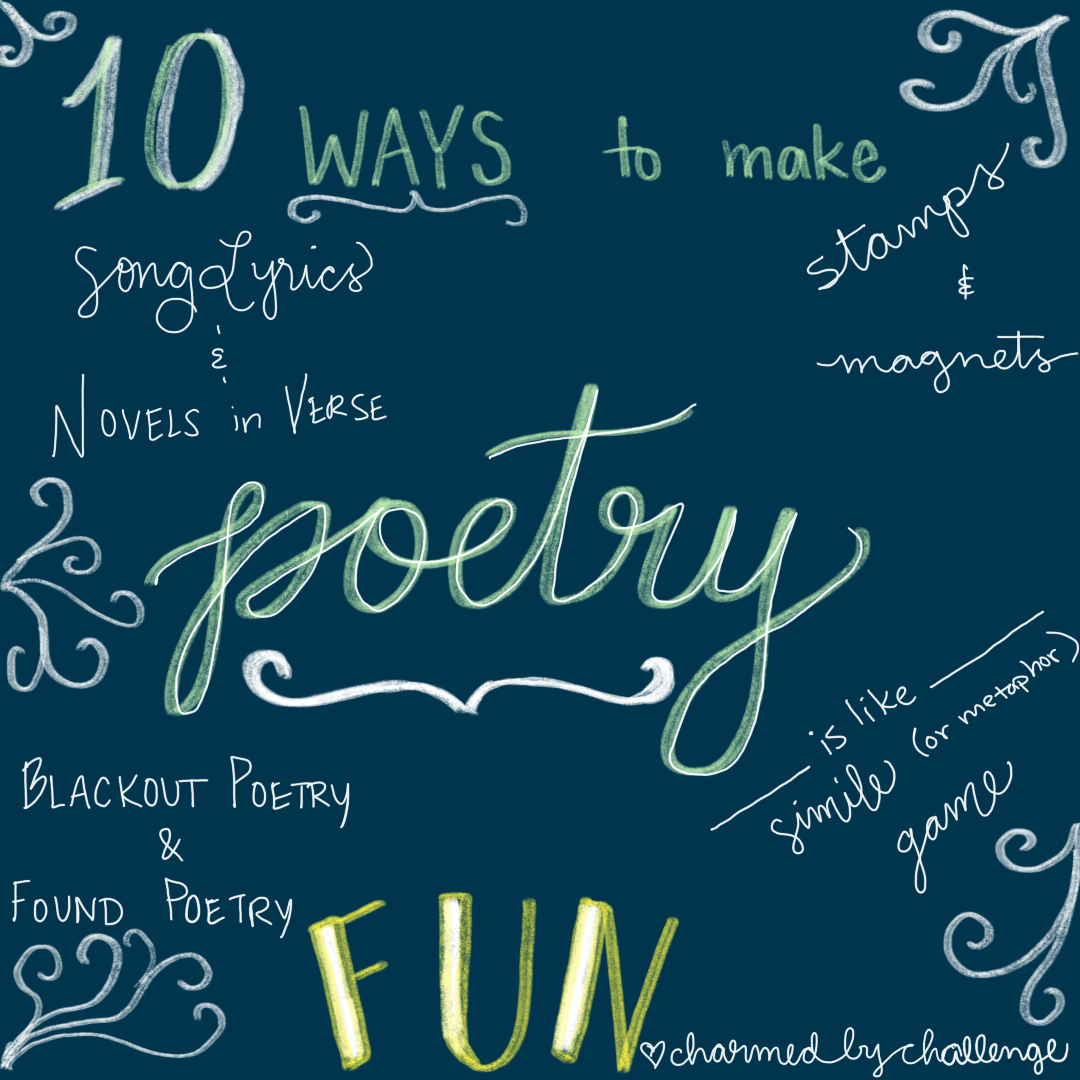 10 WAYS to make
stamps
&
magnets
Song Lyrics
&
NOVELS in VERSE
poetry
_____ is like _____
simile (or metaphor)
game
BLACKOUT POETRY
&
FOUND POETRY
FUN
♡charmed by challenge